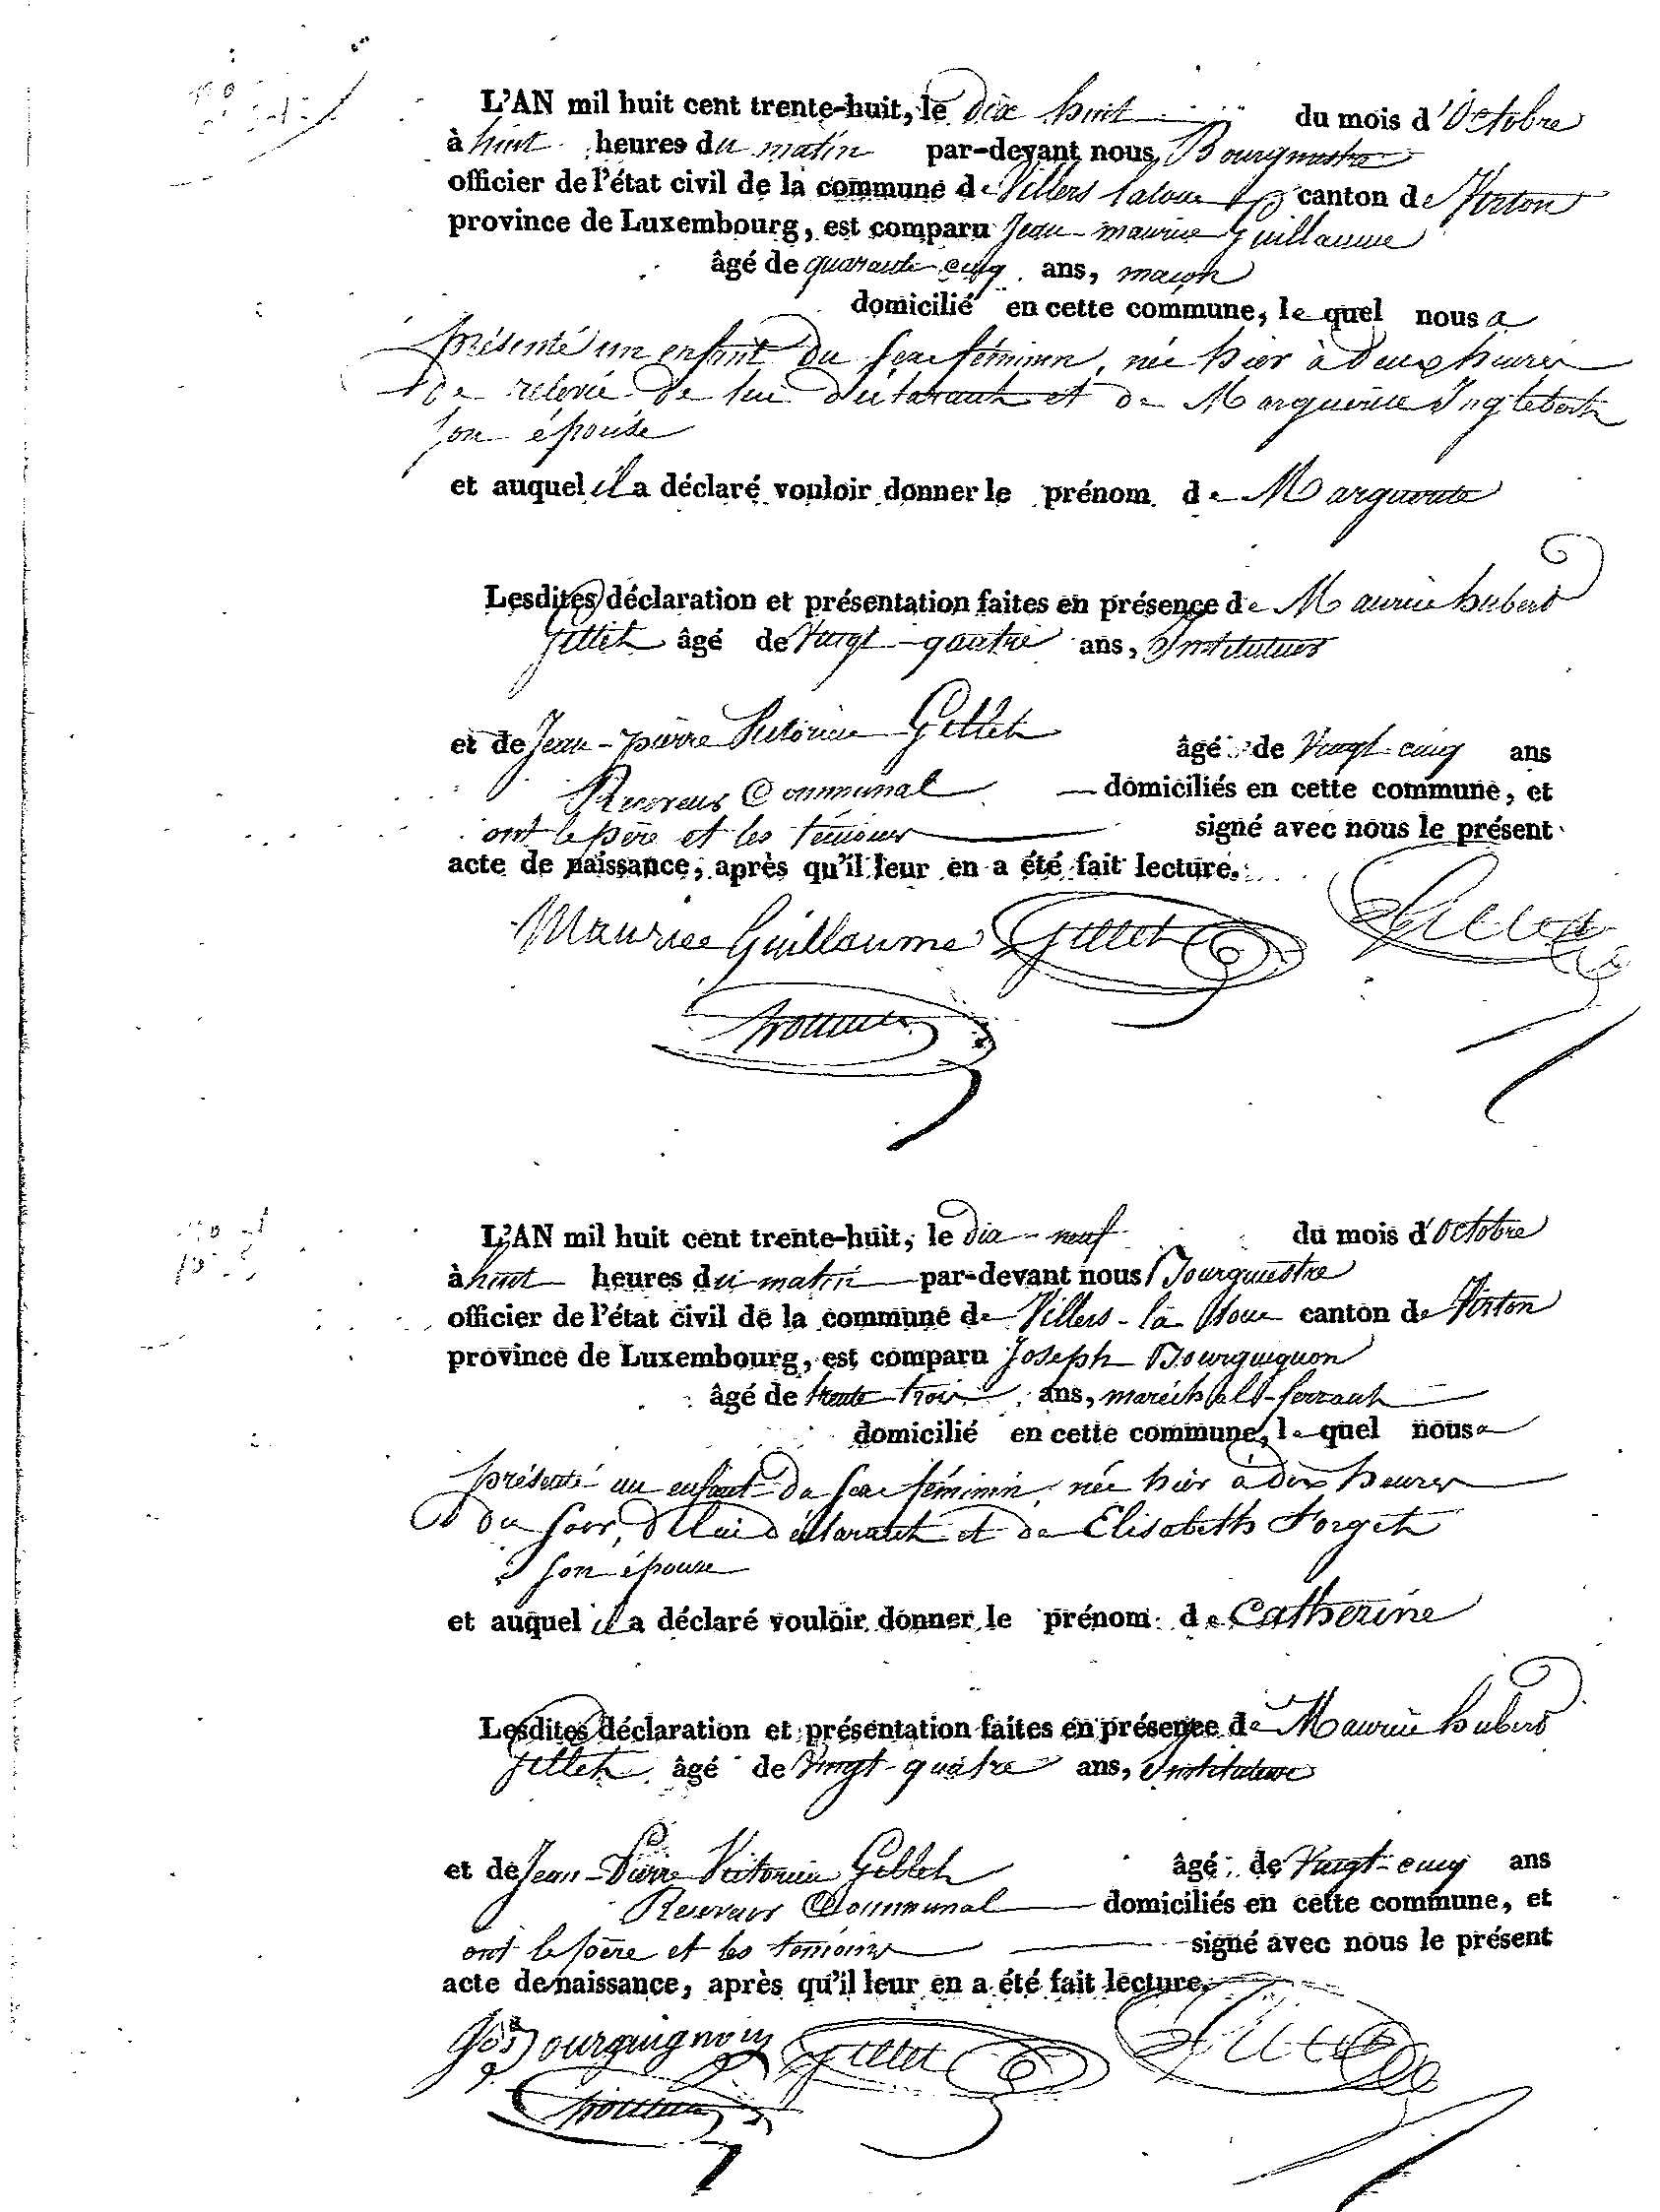 L'AN mil huit cent trente-huit, le dix huit du mois d'Octobre
à huit heures du matin par-devant nous, Bourgmestre
officier de l'état civil de la commune de Villers laloue canton de Virton
province de Luxembourg, est comparu Jean-maurice Guillaume
âgé de quarante cinq ans, maçon
domicilié en cette commune, lequel nous a
présenté un enfant du sexe féminin, née hier à deux heures
de relevée de lui déclarant et de Marguerite Inglebert
son épouse
et auquel il a déclaré vouloir donner le prénom de Marguerite
Lesdites déclaration et présentation faites en présence de Maurice hubert
Gillet âgé de Vingt-quatre ans, Instituteur
et de Jean-pierre Victorien Gillet âgé de Vingt-cinq ans
Receveur Communal domiciliés en cette commune, et
ont le père et les témoins signé avec nous le présent
acte de naissance, après qu'il leur en a été fait lecture.
Maurice Guillaume Gillet Gillet
L'AN mil huit cent trente-huit, le dix-neuf du mois d'octobre
à huit heures du matin par-devant nous Bourgmestre
officier de l'état civil de la commune de Villers-la-loue canton de Virton
province de Luxembourg, est comparu Joseph Bourguignon
âgé de trente-trois ans, maréchal-ferrant
domicilié en cette commune, lequel nous a
présenté un enfant du sexe féminin, née hier à dix heures
du soir, de lui déclarant et de Elisabeth Forget
son épouse
et auquel il a déclaré vouloir donner le prénom de Catherine
Lesdites déclaration et présentation faites en présence de Maurice hubert
Gillet âgé de Vingt-quatre ans, Instituteur
et de Jean-Pierre Victorien Gillet âgé de Vingt-cinq ans
Receveur Communal domiciliés en cette commune, et
ont le père et les témoins signé avec nous le présent
acte de naissance, après qu'il leur en a été fait lecture.
Jos Bourguignon Gillet Gillet